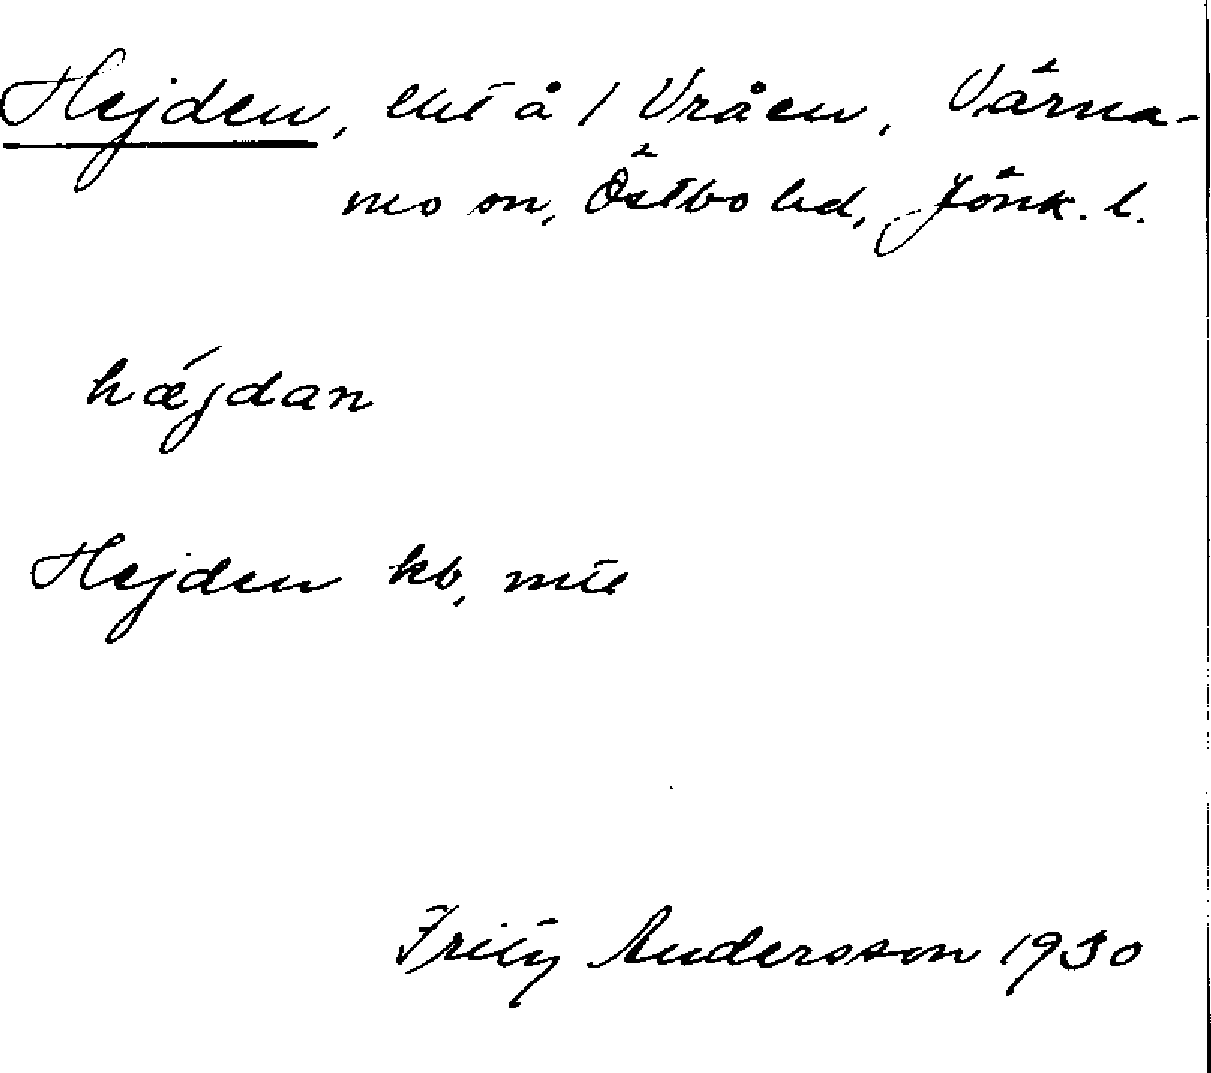 Hejden, lht å 1 Vråen, Värna-
mo sn, Östbo hd, Jönk. l.
hǽjdan
Hejden kb, mtl
Fritz Andersson 1930